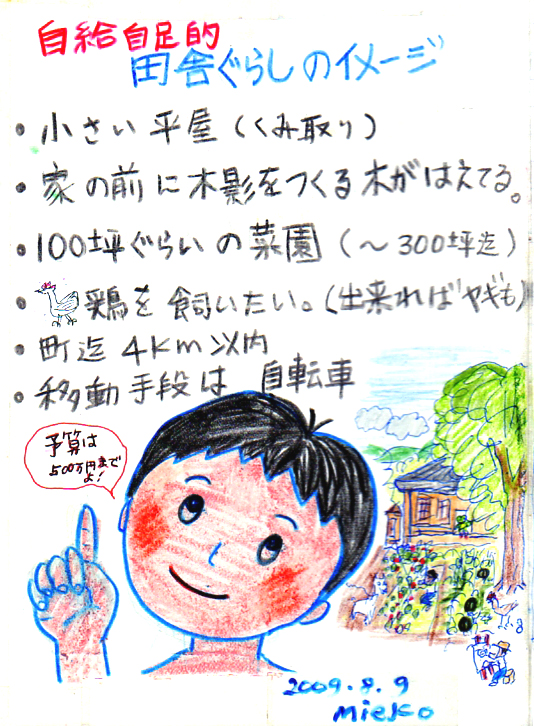 自給自足的
田舎ぐらしのイメージ
・小さい平屋(くみ取り)
・家の前に木影をつくる木がはえてる。
・100坪ぐらいの菜園(〜300坪迄)
・鶏を飼いたい。(出来ればヤギも)
・町迄4km以内
・移動手段は 自転車
予算は
500万円まで
よ!
2009.8.9
Mieko